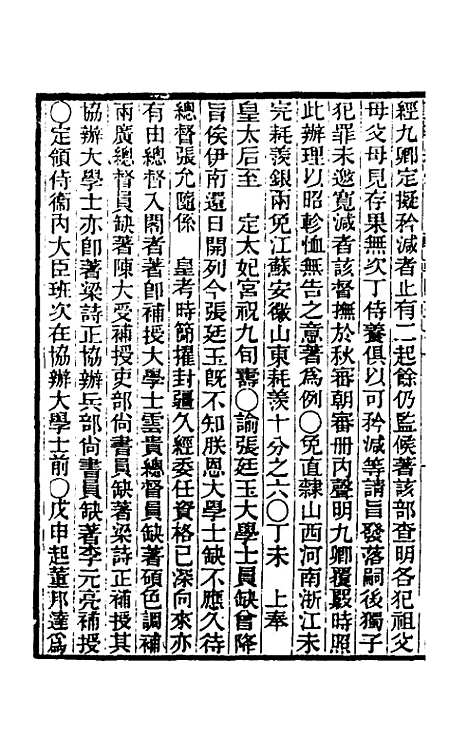 經九卿定擬矜減者止有二起餘仍監候著該部查明各犯祖父
母父母見存果無次丁侍養俱以可矜減等請旨發落嗣後獨子
犯罪未邀寬減者該督撫於秋審朝審册內聲明九卿覆覈時照
此辦理以昭軫恤無告之意著爲例○免直隸山西河南浙江未
完耗羨銀兩免江蘇安徽山東耗羨十分之六○丁未　上奉
皇太后至　定太妃宮祝九旬壽○諭張廷玉大學士員缺曾降
旨俟伊南還日開列今張廷玉既不知朕恩大學士缺不應久待
總督張允隨係　皇考時簡擢封疆久經委任資格已深向來亦
有由總督入閣者著卽補授大學士雲貴總督員缺著碩色調補
兩廣總督員缺著陳大受補授吏部尚書員缺著梁詩正補授其
協辦大學士亦卽著梁詩正協辦兵部尚書員缺著李元亮補授
○定領侍衞內大臣班次在協辦大學士前○戊申起董邦達爲